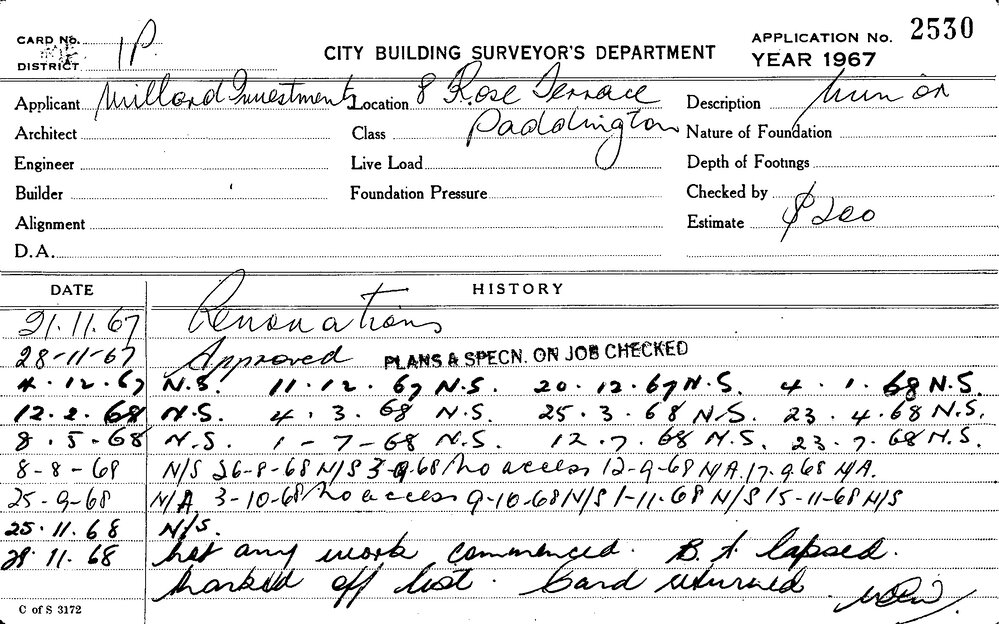 CARD No. 1P.
DISTRICT
CITY BUILDING SURVEYOR'S DEPARTMENT
APPLICATION No. 2530
YEAR 1967
Applicant Millard Investments Location 8 Rose Terrace Description
Architect Class Paddington Nature of Foundation
Engineer Live Load Depth of Footings
Builder Foundation Pressure Checked by
Alignment Estimate $200
D.A.
DATE HISTORY
21.11.67 Renovations
28-11-67 Approved PLANS & SPECN. ON JOB CHECKED
4.12.67 N.S. 11.12.67 N.S. 20.12.67 N.S. 4.1.68 N.S.
12.2.68 N.S. 4.3.68 N.S. 25.3.68 N.S. 23.4.68 N.S.
8.5-68 N.S. 1-7-68 N.S. 12.7.68 N.S. 23.7.68 N.S.
8-8-68 N/S 26-8-68 N/S 3-9-68 No access 12-9-68 N/A. 17.9.68 N/A.
25-9-68 N/A 3-10-68 No access 9-10-68 N/S 1-11-68 N/S 15-11-68 N/S
25.11.68 N/S.
29.11.68 Not any work commenced. B.A lapsed.
Marked off list. Card returned.
C of S 3172